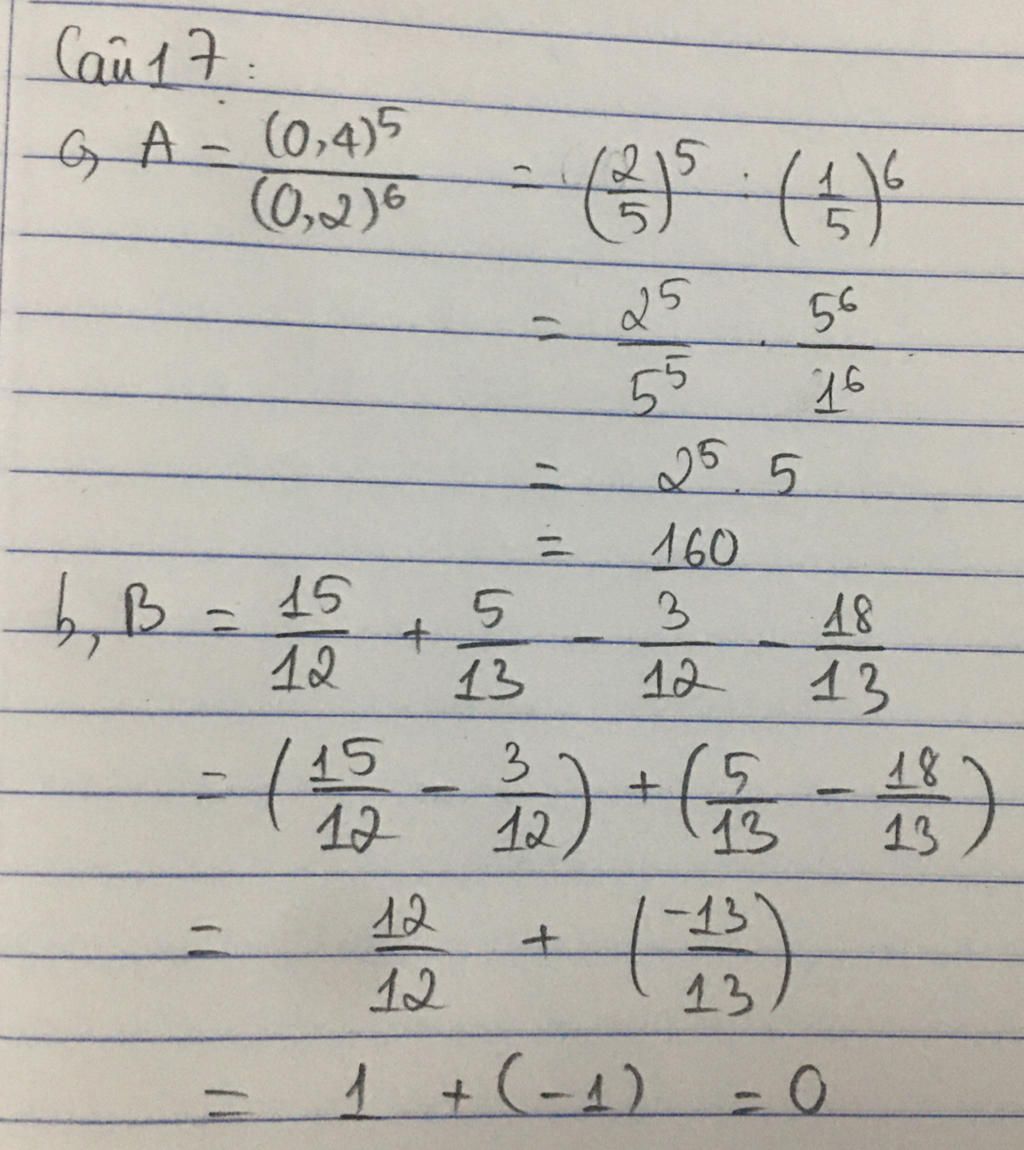 Câu 17:
a, A = (0,4)⁵/(0,2)⁶ = (2/5)⁵ : (1/5)⁶
= 2⁵/5⁵ . 5⁶/1⁶
= 2⁵ . 5
= 160
b, B = 15/12 + 5/13 - 3/12 - 18/13
= (15/12 - 3/12) + (5/13 - 18/13)
= 12/12 + (-13/13)
= 1 + (-1) = 0